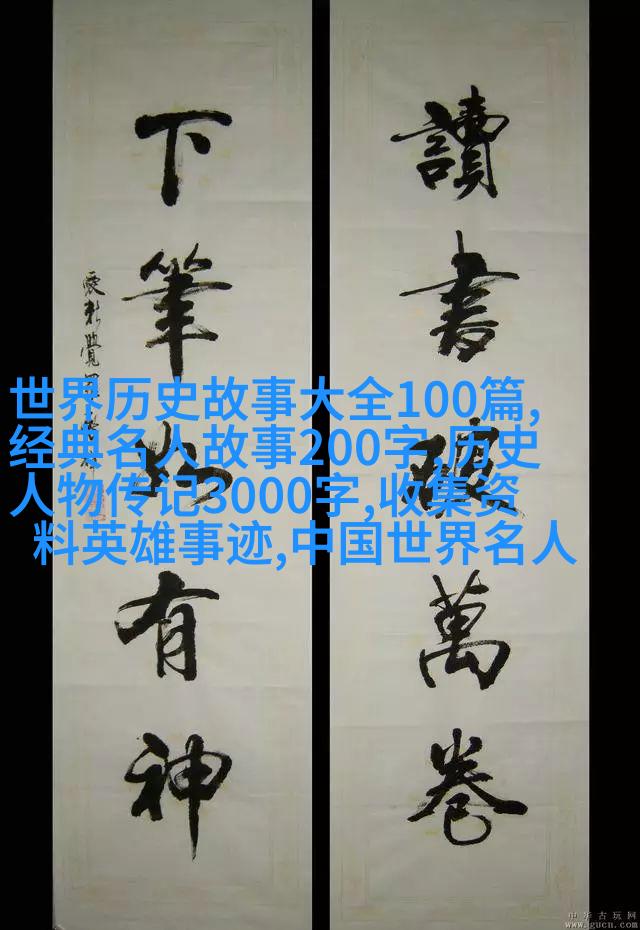 讀書破萬卷
下筆如有神
世界历史故事大全100篇,
经典名人故事200字,历史
人物传记3000字,收集资
料英雄事迹,中国世界名人
中华古玩网
www.gucn.com